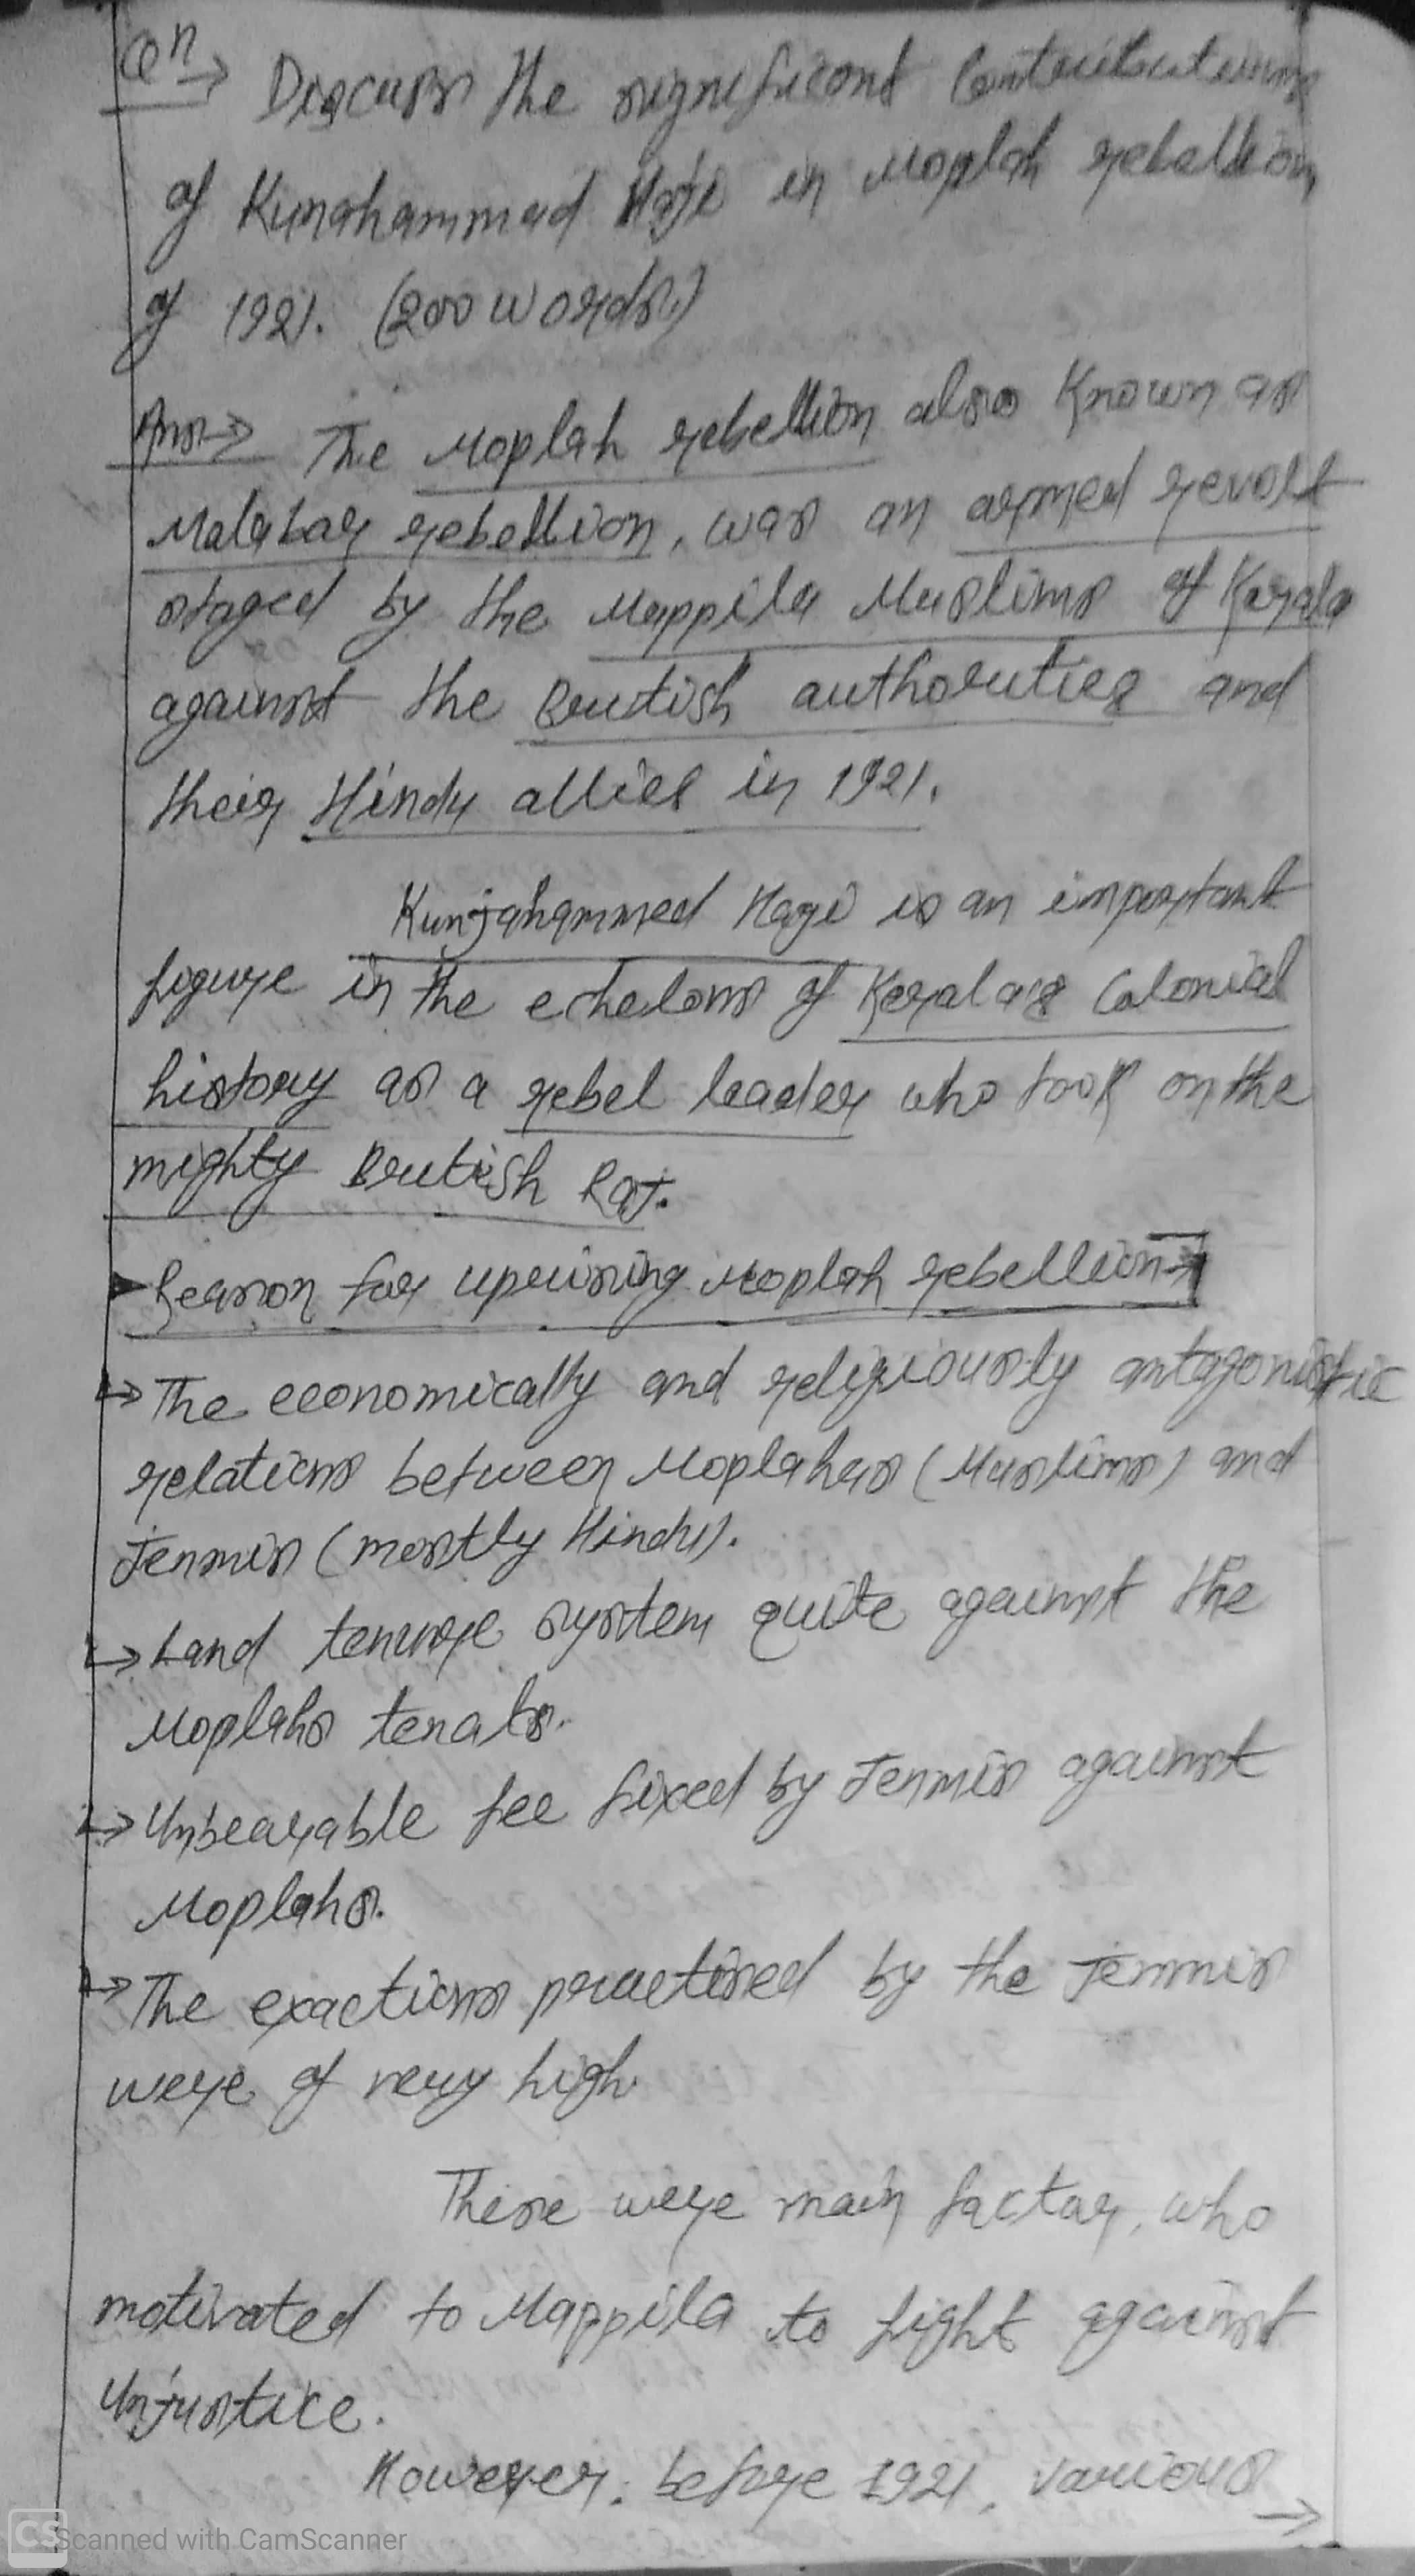 Qn→ Discuss the significant Contributions
of Kunahammad Haji in Moplah rebellion
of 1921. (200 words.)
Ans→ The Moplah rebellion also known as
Malabar rebellion, was an armed revolt
staged by the Mappila Muslims of Kerala
against the British authorities and
their Hindu allies in 1921.
Kunjahammed Hagi is an important
figure in the echelons of Kerala's Colonial
history as a rebel leader who took on the
mighty British Raj.
Reason for uprising Moplah rebellion→
↳ The economically and religiously antagonistic
relations between Moplahas (Muslims) and
Jenmis (mostly Hindu).
↳ Land tenure system quite against the
Moplahs tenats.
↳ Unbearable fee fixed by Jenmis against
Moplahs.
↳ The exactions practised by the Jenmis
were of very high.
These were main factor, who
motivated to Mappila to fight against
Unjustice.
However, before 1921, various
→
CS Scanned with CamScanner